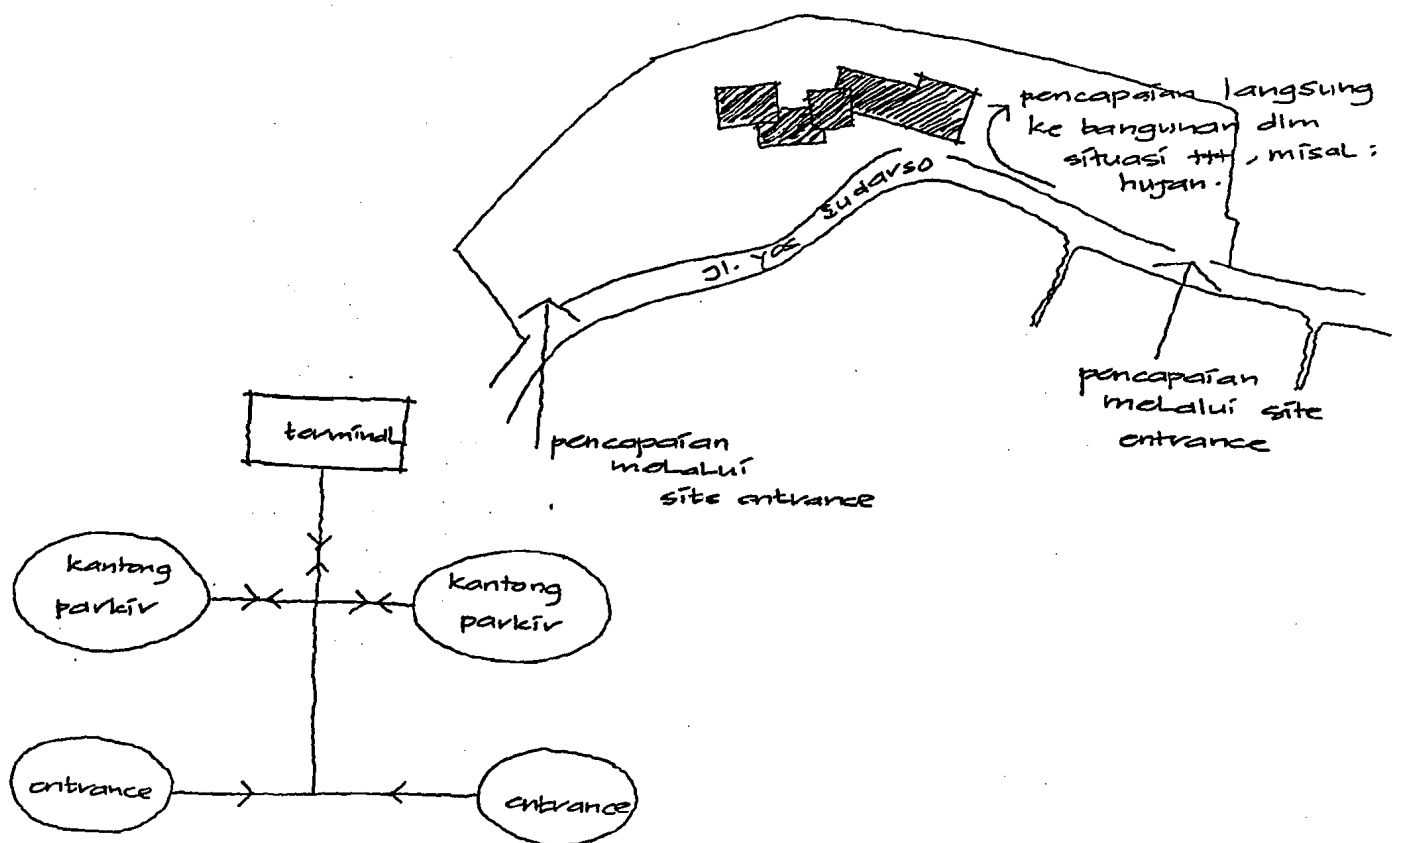 pencapaian langsung
ke bangunan dlm
situasi ttt, misal :
hujan.
Jl. yos sudarso
pencapaian
melalui site
entrance
pencapaian
melalui
site entrance
terminal
kantong
parkir
kantong
parkir
entrance
entrance